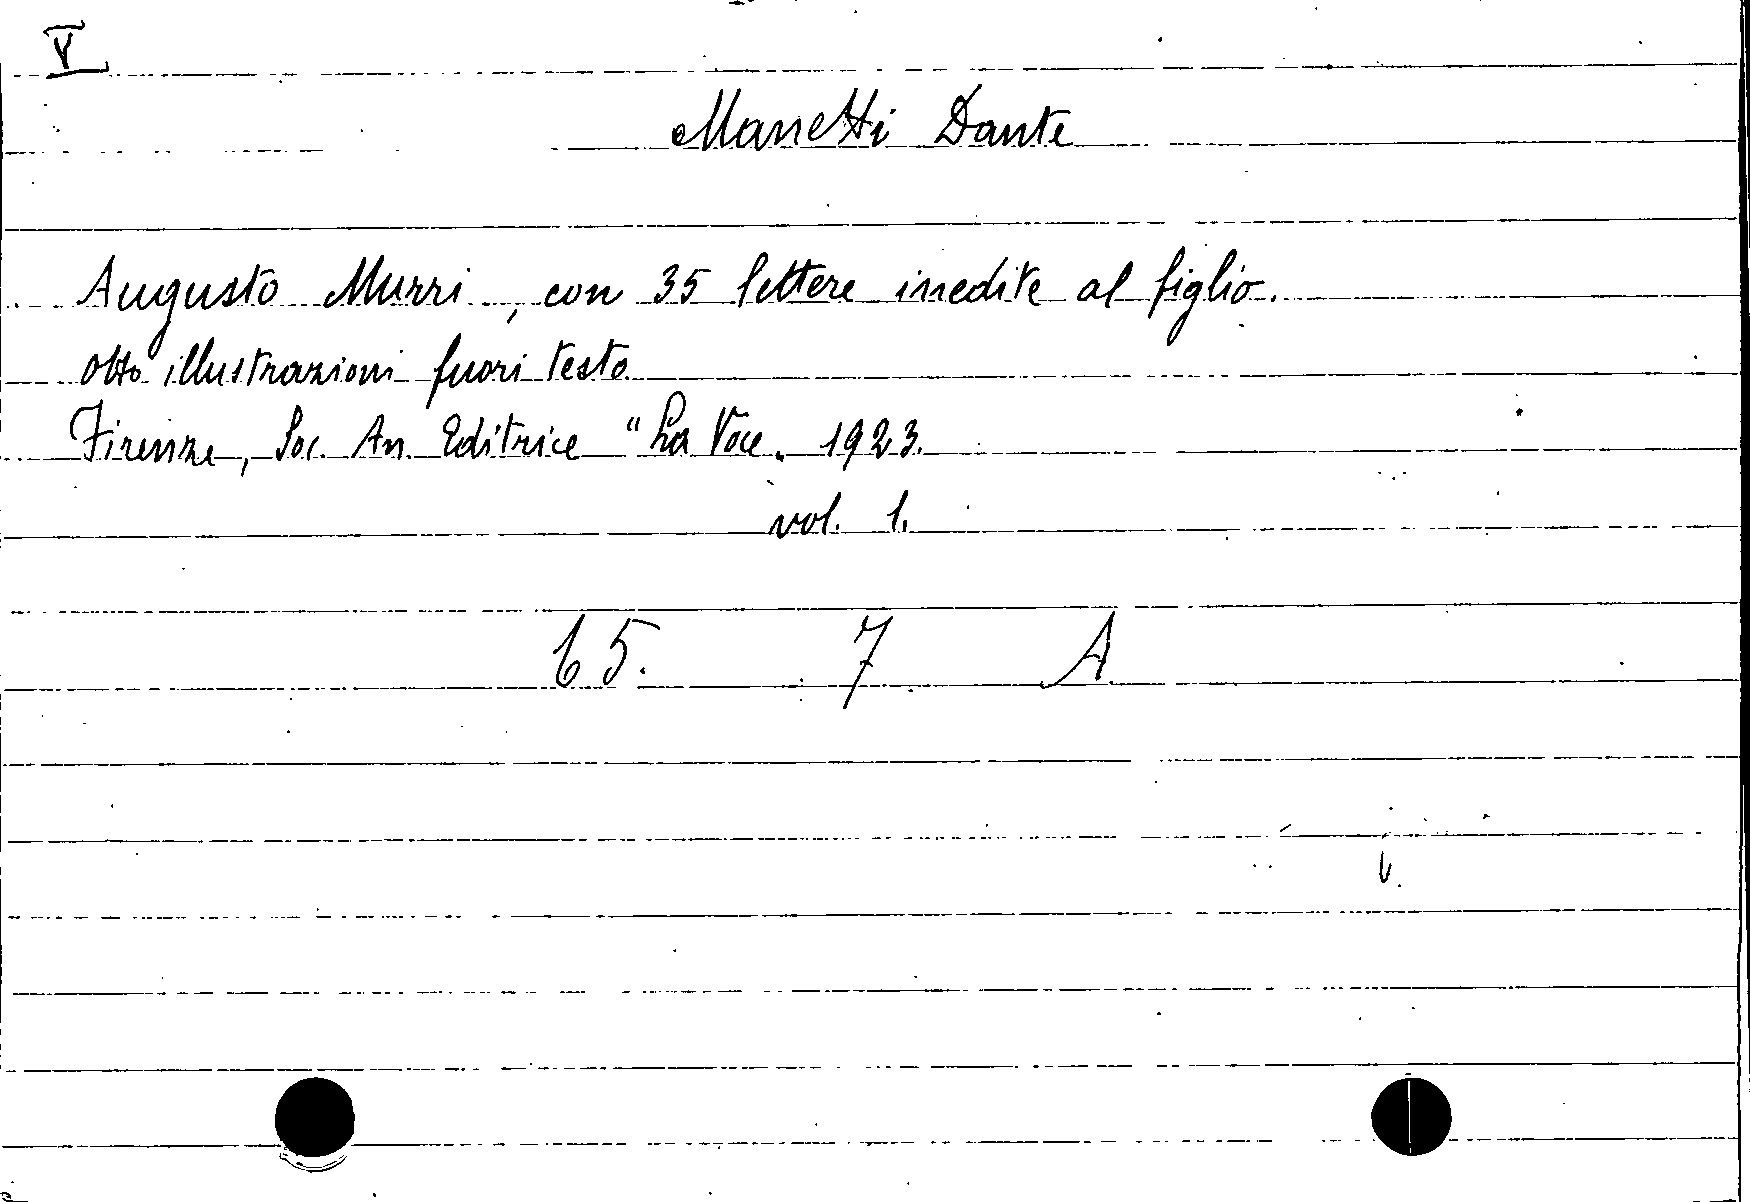 V
Manetti Dante
Augusto Murri, con 35 lettere inedite al figlio.
otto illustrazioni fuori testo
Firenze, Soc. An. Editrice "La Voce„ 1923.
vol. 1.
65. 7 A